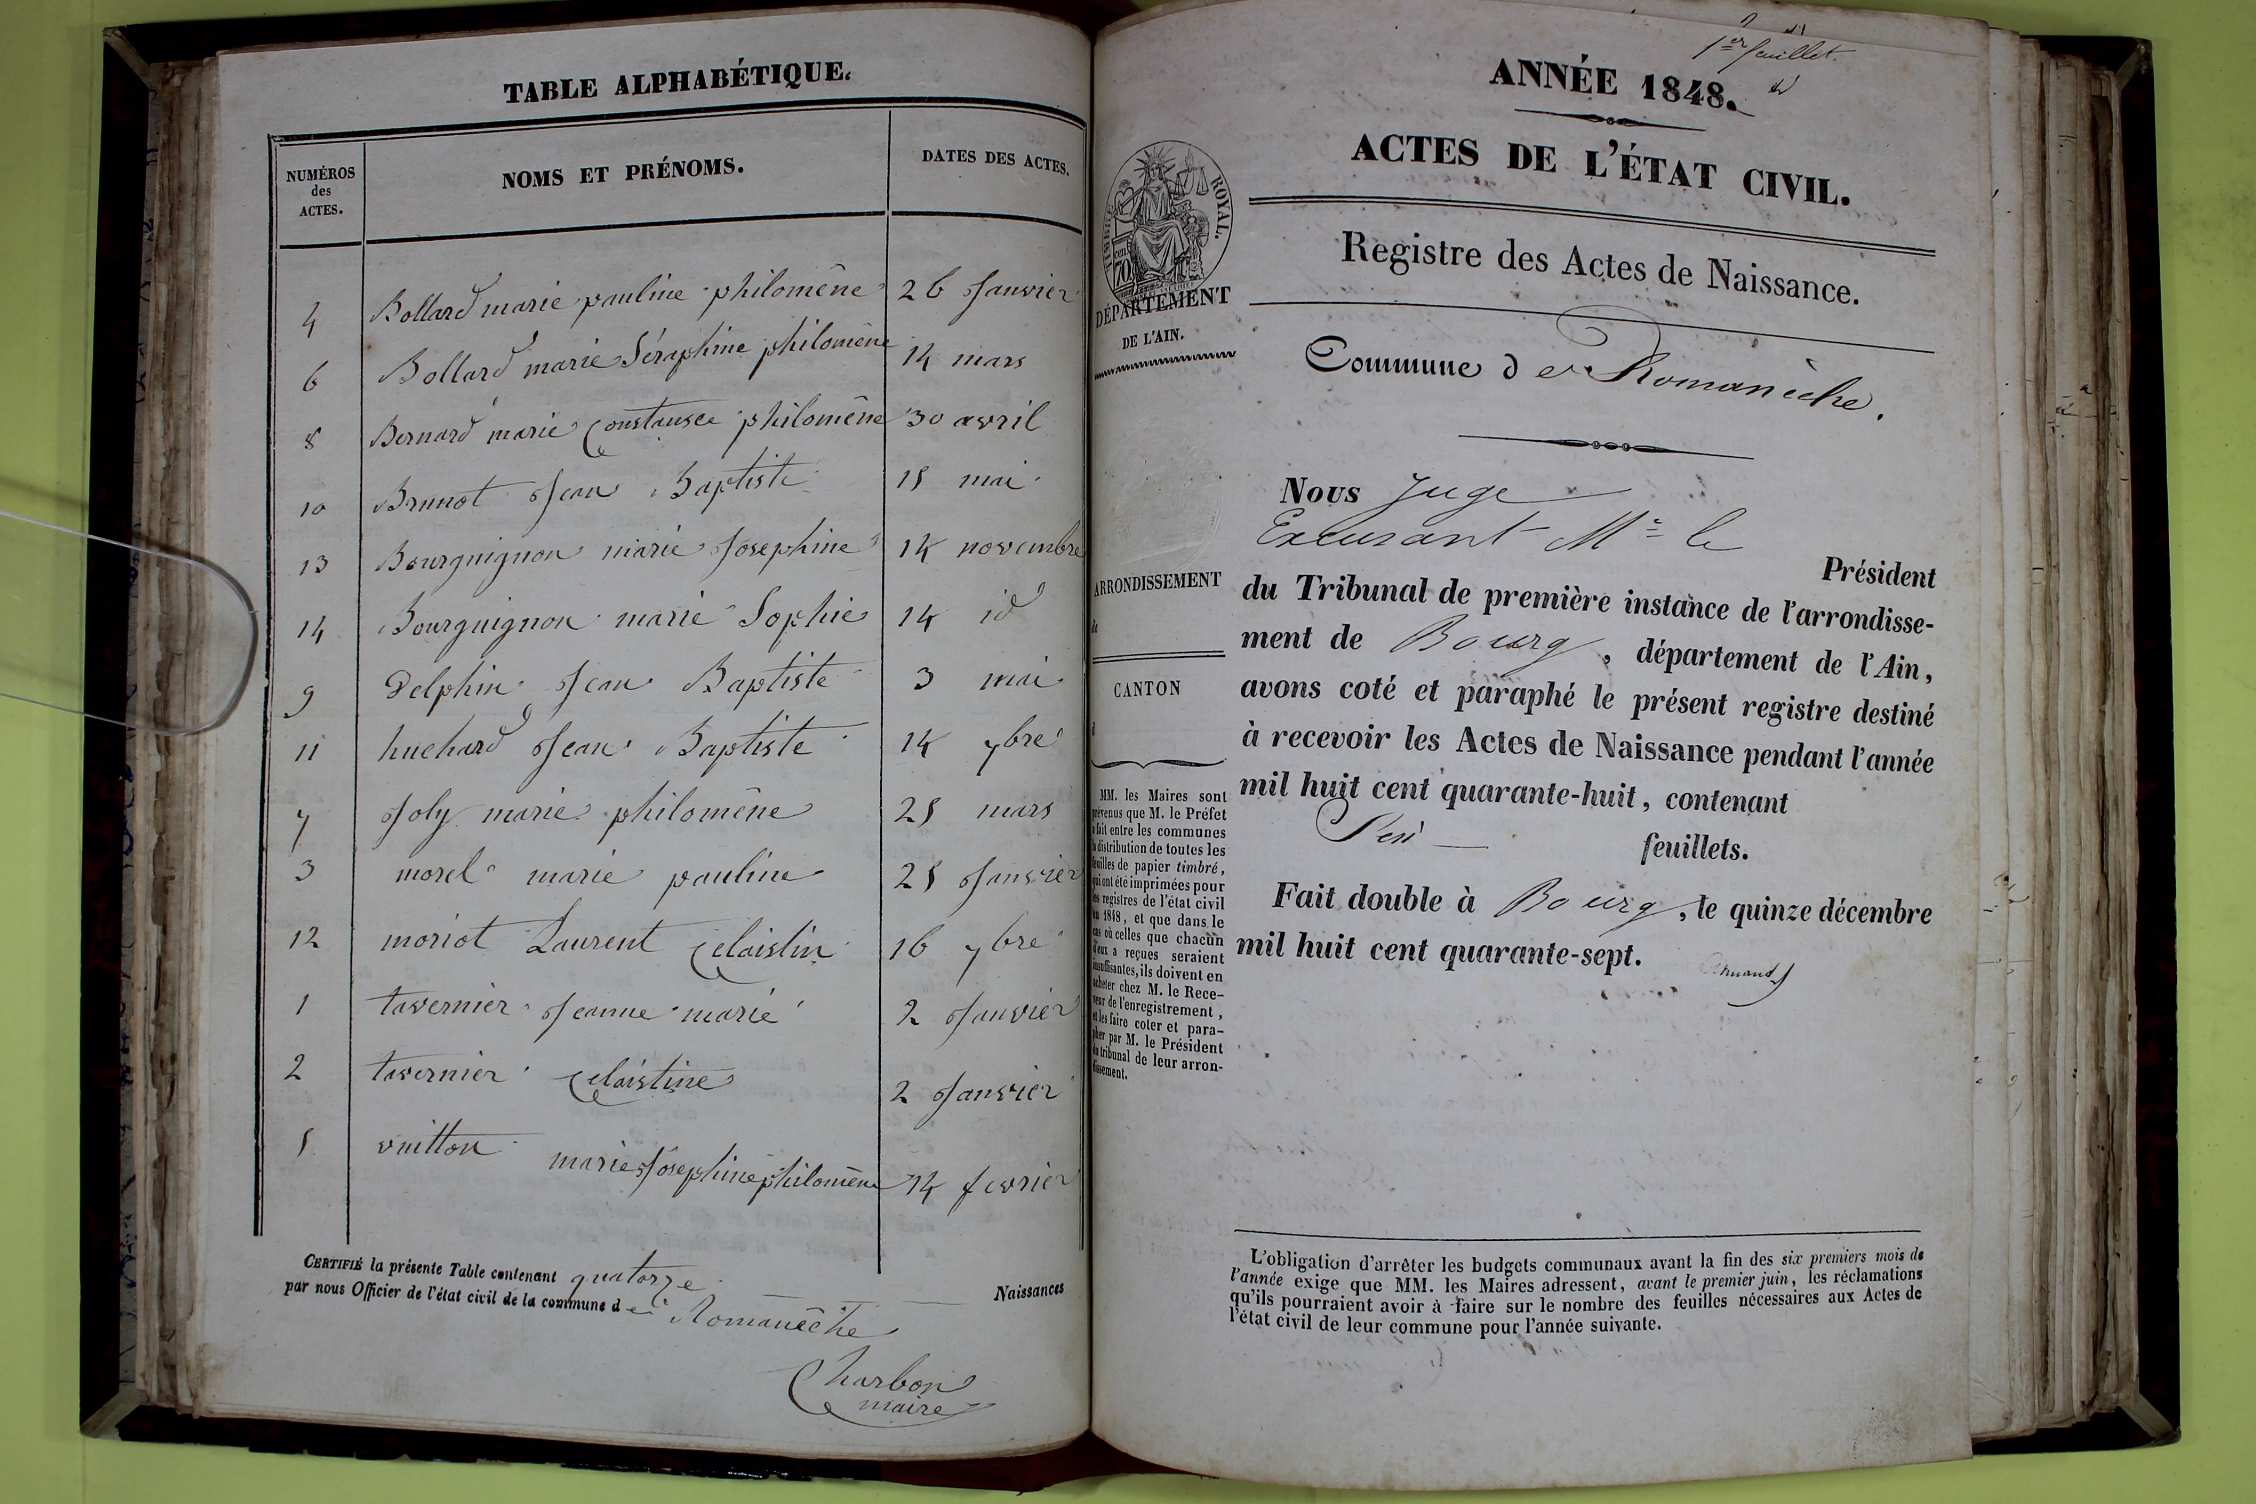 TABLE ALPHABÉTIQUE.
NUMÉROS des ACTES. NOMS ET PRÉNOMS. DATES DES ACTES.
4 Bollard marie pauline philomène 26 Janvier
6 Bollard marie Séraphine philomène 14 mars
8 Bernard marie Constansee philomène 30 avril
10 Brunot Jean Baptiste 15 mai
13 Bourguignon marie Josephine 14 novembre
14 Bourguignon marie Sophie 14 id
9 Delphin Jean Baptiste 3 mai
11 huchard Jean Baptiste 14 7bre
7 Joly marie philomène 25 mars
3 morel marie pauline 25 Janvier
12 moriot Laurent Celaistin 16 7bre
1 tavernier Jeanne marie 2 Janvier
2 tavernier Celaistine 2 Janvier
5 vuitton marie Josephine philomène 14 fevrier
CERTIFIÉ la présente Table contenant quatorze Naissances
par nous Officier de l'état civil de la commune de Romanèche
Charbon
maire
1er feuillet.
ANNÉE 1848.
ACTES DE L'ÉTAT CIVIL.
TIMBRE ROYAL.
70
DÉPARTEMENT
DE L'AIN.
Registre des Actes de Naissance.
Commune de Romanèche.
ARRONDISSEMENT
de
CANTON
d
MM. les Maires sont
prévenus que M. le Préfet
a fait entre les communes
la distribution de toutes les
feuilles de papier timbré,
qui ont été imprimées pour
les registres de l'état civil
en 1848, et que dans le
cas où celles que chacun
d'eux a reçues seraient
insuffisantes, ils doivent en
acheter chez M. le Rece-
veur de l'enregistrement,
et les faire coter et para-
pher par M. le Président
du tribunal de leur arron-
dissement.
Nous Juge
Excusant Mr le Président
du Tribunal de première instance de l'arrondisse-
ment de Bourg, département de l'Ain,
avons coté et paraphé le présent registre destiné
à recevoir les Actes de Naissance pendant l'année
mil huit cent quarante-huit, contenant
feuillets.
Fait double à Bourg, le quinze décembre
mil huit cent quarante-sept.
L'obligation d'arrêter les budgets communaux avant la fin des six premiers mois de
l'année exige que MM. les Maires adressent, avant le premier juin, les réclamations
qu'ils pourraient avoir à faire sur le nombre des feuilles nécessaires aux Actes de
l'état civil de leur commune pour l'année suivante.